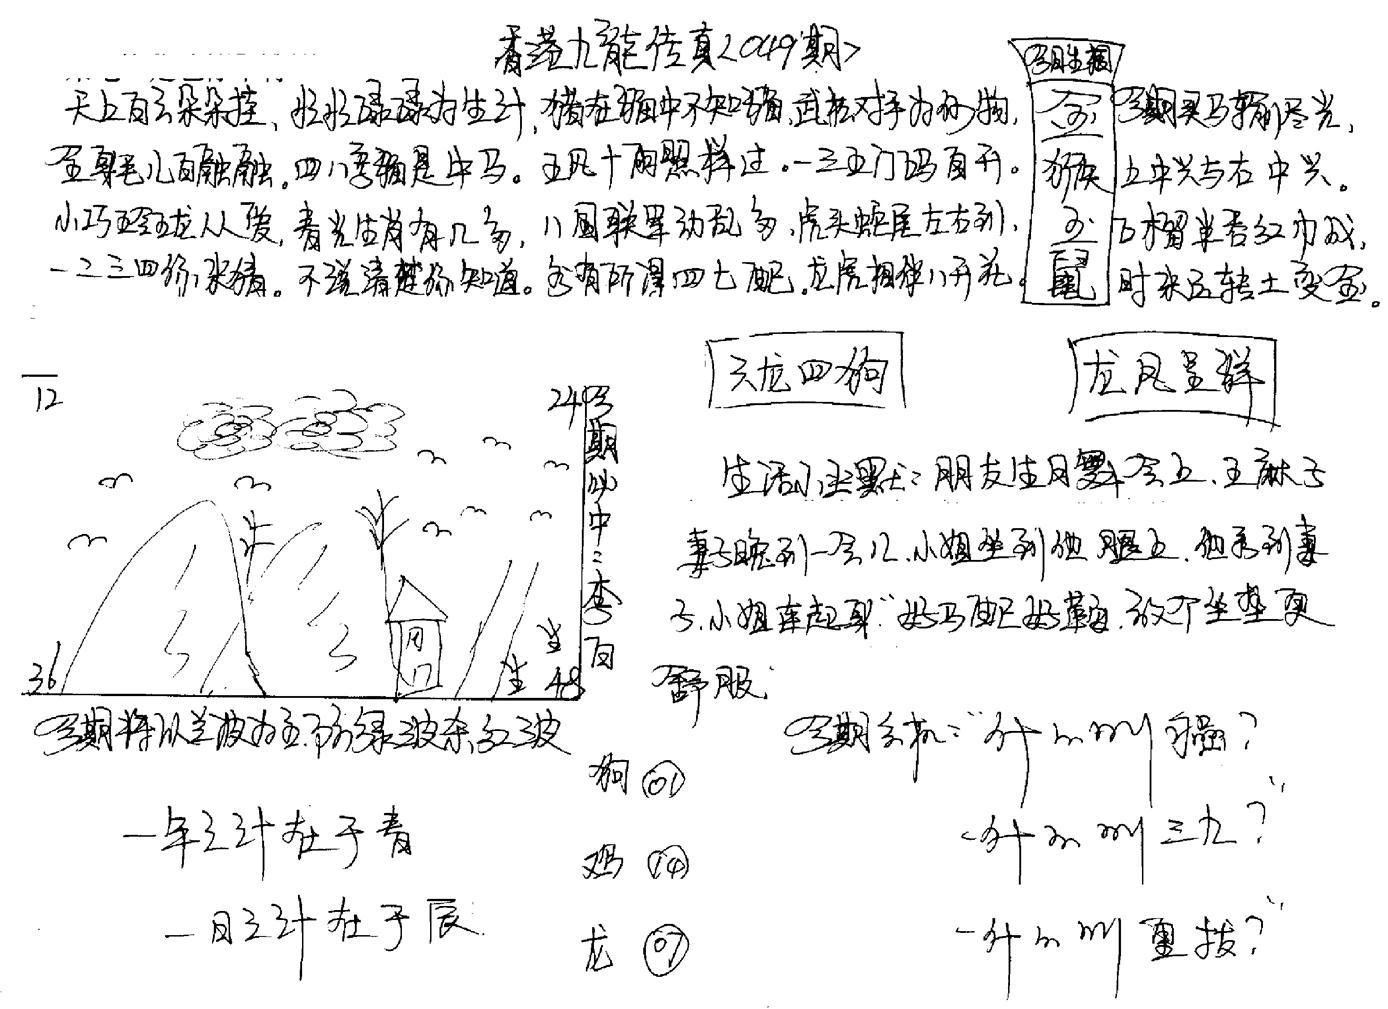 香港九龙传真<049期>
今日生相
天上百云朵朵挂、忙忙碌碌为生计,猪在猪中不知猪,武松对手为何物,
至尊毛儿百融融。四八季猪是中马。五风十雨照样过。一三五门码百开。
小巧玲珑人人爱,青光生肖有几多,八国联军动乱多,虎头蛇尾左右到,
一二三四你来猜。不说清楚你知道。各有所得四七配,龙虎相伴八开花。
金
猴
金
鼠
今期买马输尽光,
上中兴与右中兴。
石榴半吞红巾成,
时来运转土变金。
天龙四狗
龙凤呈祥
12
24
今期必中:杏百
生
生
36
48
生活小幽默:朋友生日聚会上、王麻子
妻子晚到一会儿、小姐坐到他腿上、他看到妻
子、小姐车起耳"好马配好鞍,放个坐垫更
舒服
今期将以兰波为主、防绿波杀红波
一年之计在于青
一日之计在于辰
狗 01
鸡 14
龙 07
今期玄机:"什么叫 骚?
"什么叫三九?"
"什么叫 重拔?"